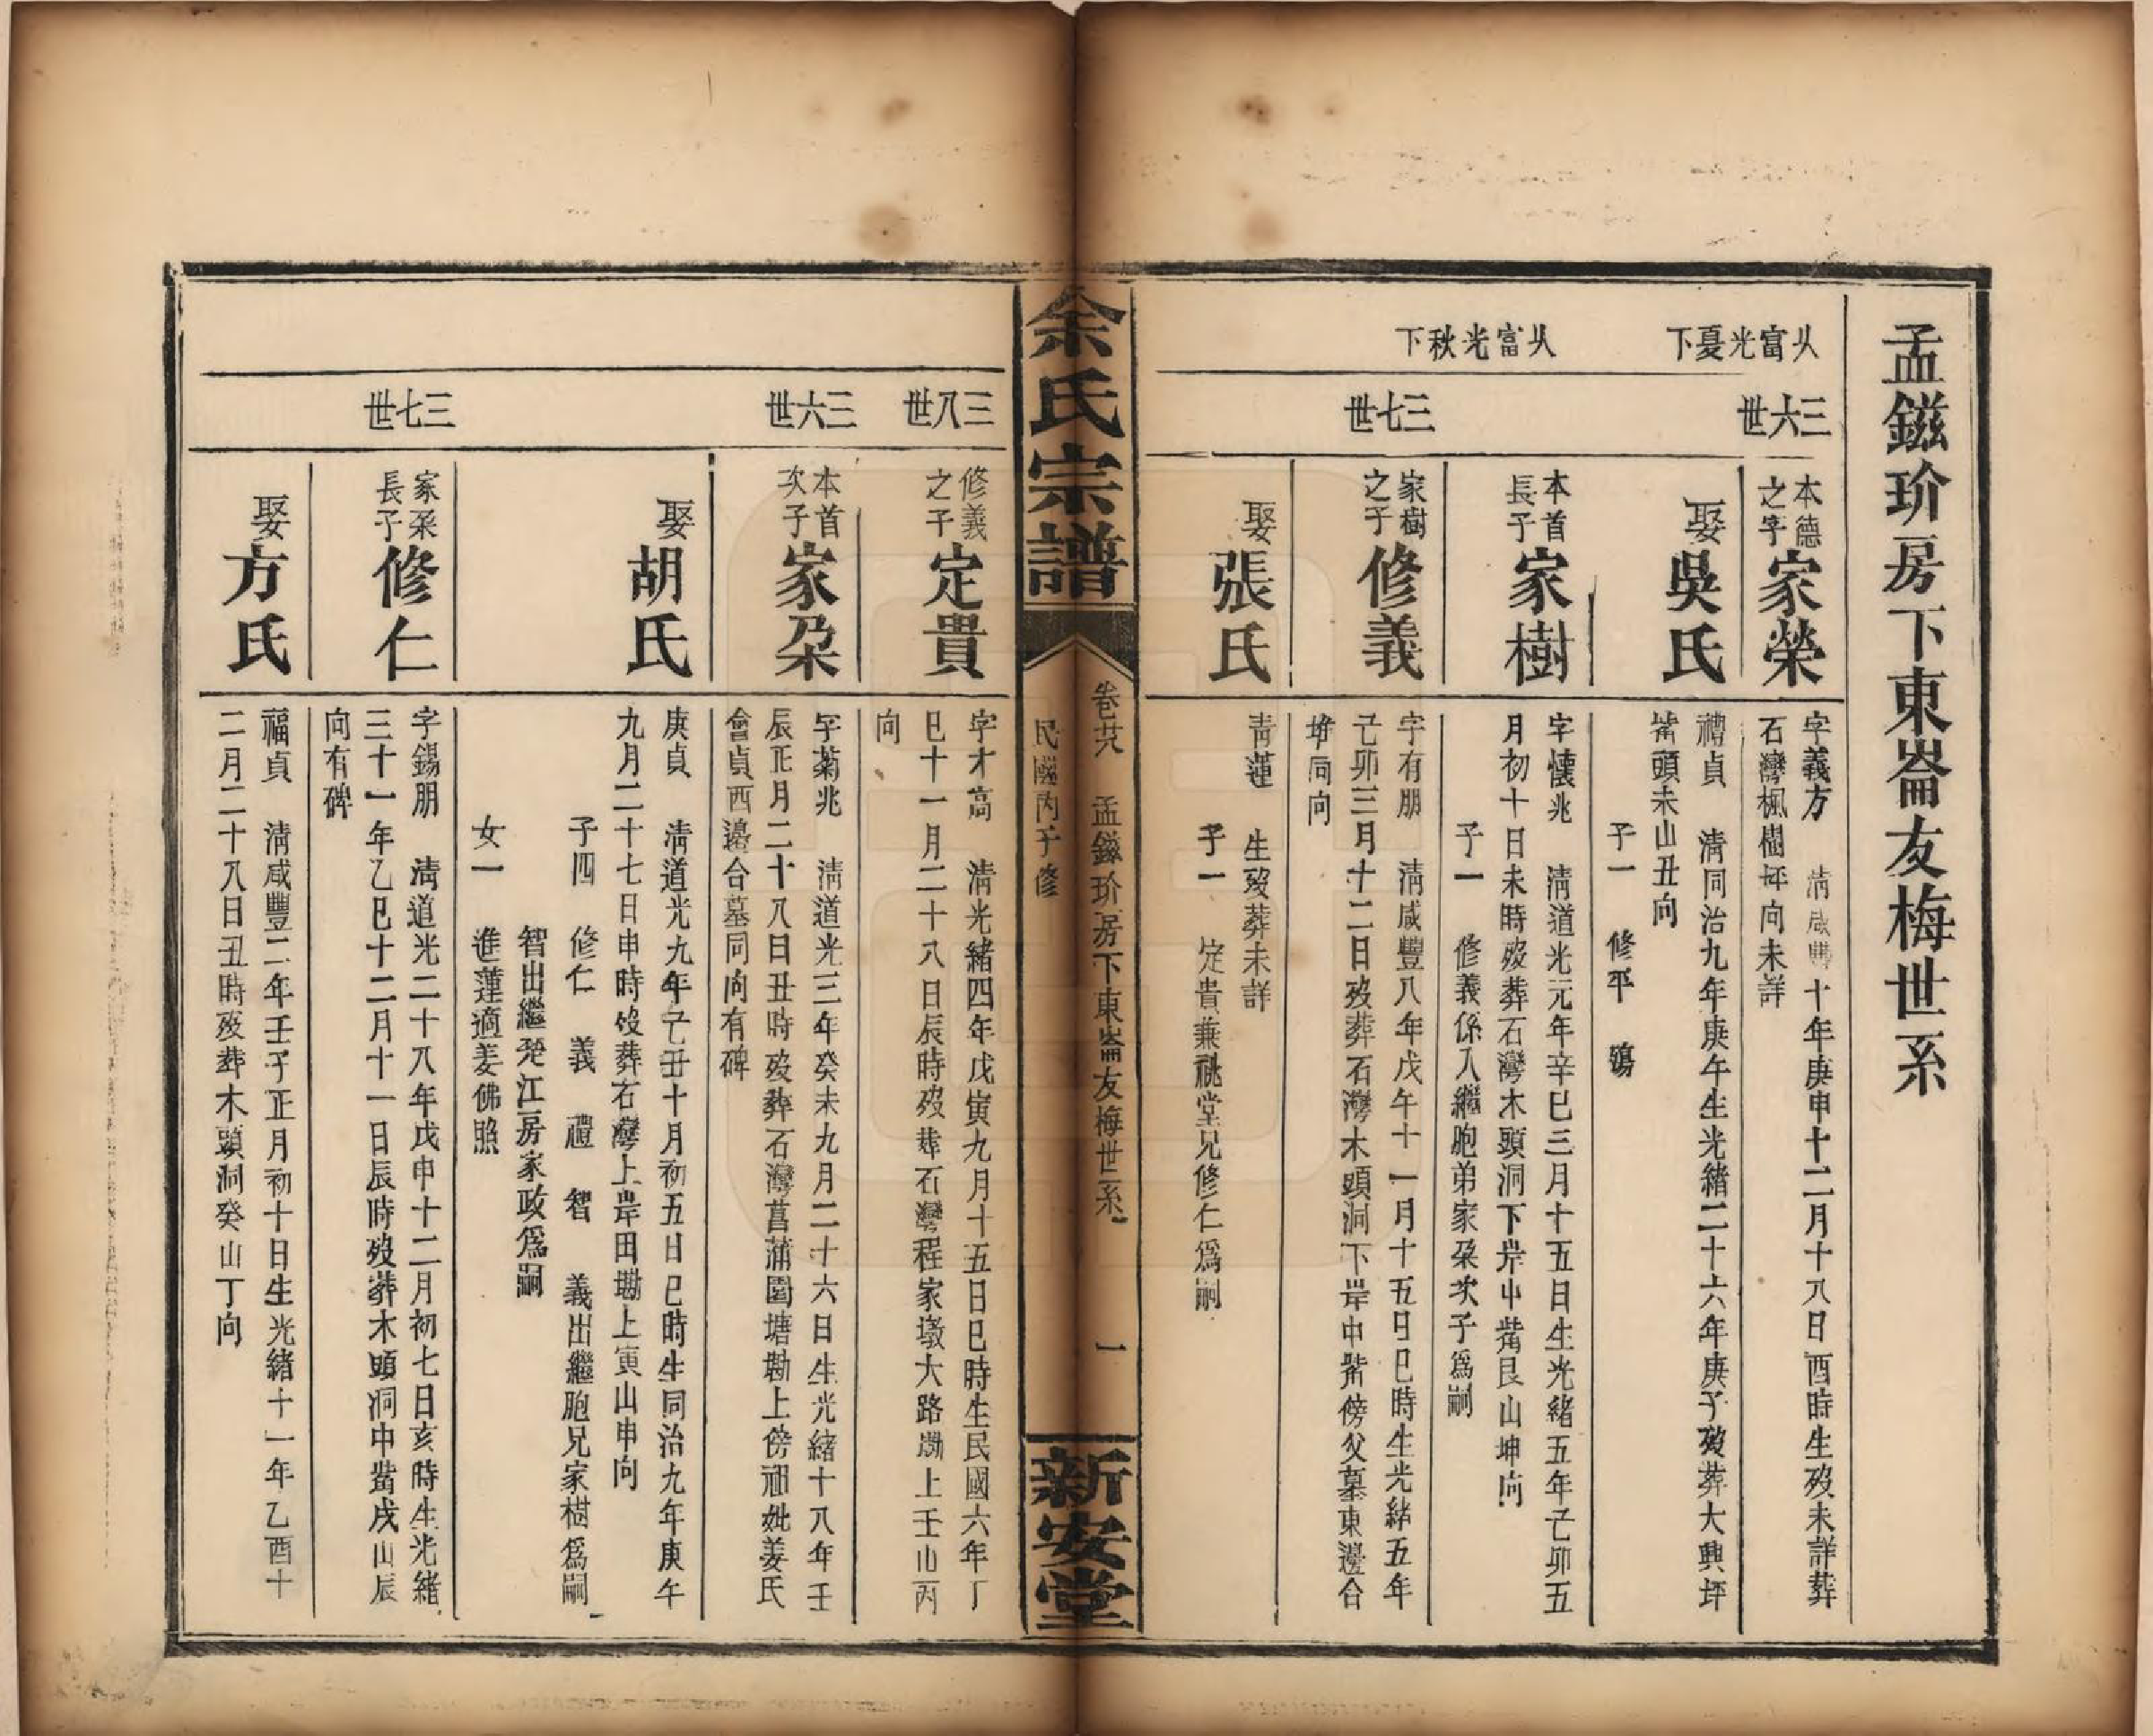 孟鎡玠房下東崙友梅世系
从富光夏下
三六世
本德
之字
家榮
字義方　清咸豐十年庚申十二月十八日酉時生歿未詳葬
石灣楓樹坪向未詳
娶
吳氏
禮貞　清同治九年庚午生光緒二十六年庚子歿葬大興坪
嵛頭未山丑向
子一　修平　殤
从富光秋下
本首
長子
家樹
字懷兆　清道光元年辛巳三月十五日生光緒五年己卯五
月初十日未時歿葬石灣木頭洞下岸中嵛艮山坤向
子一　修義係入繼胞弟家朶次子爲嗣
三七世
家樹
之子
修義
字有朋　清咸豐八年戊午十一月十五日巳時生光緒五年
己卯三月十二日歿葬石灣木頭洞下岸中嵛傍父墓東邊合
塟同向
娶
張氏
青蓮　生歿葬未詳
子一　定貴兼祧堂兄修仁爲嗣
余氏宗譜
卷廿八　孟鎡玠房下東崙友梅世系　一
民國丙子修
新安堂
三八世
修義
之子
定貴
字才高　清光緒四年戊寅九月十五日巳時生民國六年丁
巳十一月二十八日辰時歿葬石灣程家墩大路磡上壬山丙
向
三六世
本首
次子
家朶
字菊兆　清道光三年癸未九月二十六日生光緒十八年壬
辰正月二十八日丑時歿葬石灣菖蒲園塘勘上傍祖妣姜氏
會貞西邊合墓同向有碑
娶
胡氏
庚貞　清道光九年己丑十月初五日巳時生同治九年庚午
九月二十七日申時歿葬石灣上岸田磡上寅山申向
子四　修仁　義　禮　智　義出繼胞兄家樹爲嗣
智出繼珗江房家政爲嗣
女一　進蓮適姜佛照
三七世
家朶
長子
修仁
字錫朋　清道光二十八年戊申十二月初七日亥時生光緒
三十一年乙巳十二月十一日辰時歿葬木頭洞中嵛戌山辰
向有碑
娶
方氏
福貞　清咸豐二年壬子正月初十日生光緒十一年乙酉十
二月二十八日丑時歿葬木頭洞癸山丁向